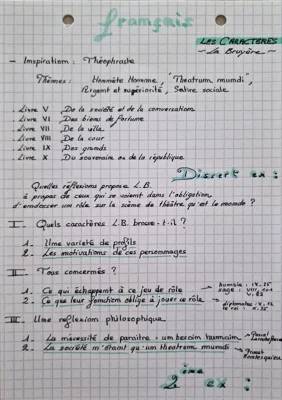 français
LES CARACTÈRES
- La Bruyère -
- Inspiration : Théophraste
Thèmes : Honnête Homme, "Theatrum mundi",
Argent et supériorité, Satire sociale
. Livre V De la société et de la conversation
. Livre VI Des biens de fortune
. Livre VII De la ville
. Livre VIII De la cour
. Livre IX Des grands
. Livre X Du souverain ou de la république
Dissert ex :
Quelles réflexions propose L.B.
à propos de ceux qui se voient dans l'obligation
d'endosser un rôle sur la scène de théâtre qu'est le monde ?
I. Quels caractères L.B. brosse-t-il ?
1. Une variété de profils
2. Les motivations de ces personnages
II. Tous concernés ?
1. Ce qui échappent à ce jeu de rôle
2. Ce que leur fonction oblige à jouer ce rôle
III. Une réflexion philosophique
1. La nécessité de paraître : un besoin humain
2. La société n'étant qu'un theatrum mundi
2 ème ex :